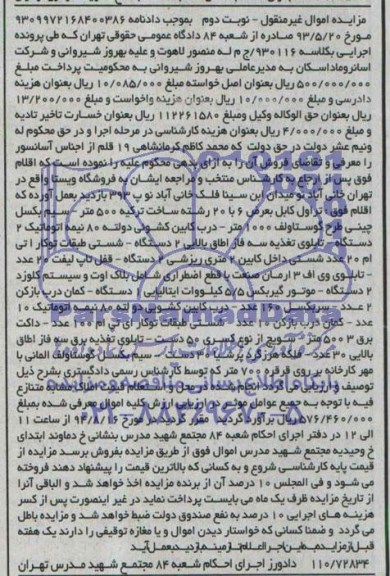 مزایده اموال غیرمنقول - نوبت دوم بموجب دادنامه ۹۳۰۹۹۷۲۱۶۸۴۰۰۳۸۶
مورخ ۹۳/۵/۲۰ صادره از شعبه ۸۴ دادگاه عمومی حقوقی تهران که طی پرونده
اجرایی بکلاسه ۹۳۰۱۱۶/ج م له منصور لاهوت و علیه بهروز شیروانی و شرکت
اسانرو ماداسکان به مدیرعاملی بهروز شیروانی به محکومیت پرداخت مبلغ
۵۰۰/۰۰۰/۰۰۰ ریال بعنوان اصل خواسته مبلغ ۱۰/۰۸۵/۰۰۰ ریال بعنوان هزینه
دادرسی و مبلغ ۱۰/۰۰۰/۰۰۰ ریال بعنوان هزینه واخواست و مبلغ ۱۳/۲۰۰/۰۰۰
ریال بعنوان حق الوکاله وکیل ومبلغ ۱۱۲۲۶۱۵۸۰ ریال بعنوان خسارت تاخیر تادیه
و مبلغ ۴/۰۰۰/۰۰۰ ریال بعنوان هزینه کارشناسی در مرحله اجرا و در حق محکوم له
ونیم عشر دولت در حق دولت که محمد کاظم کرمانشاهی ۱۹ قلم از اجناس آسانسور
را معرفی و تقاضای فروش آن را به ازای بدهی محکوم علیه را نموده است که اقلام
فوق پس از ارجاع به کارشناس منتخب و مراجعه ایشان به فروشگاه ویستا واقع در
تهران خانی آباد نو میدان ابن سینا فلکه خانی آباد نو پ ۳۹۳ بازدید بعمل آورده که
اقلام فوق: تراول کابل بعرض ۶ با ۲۰ رشته ساخت ترکیه ۵۰۰ متر - سیم بکسل
چینی طرح گوستاولف ۱۰۰۰ متر - درب کابین کشویی دولته ۸۰ نیمه اتوماتیک ۲
دستگاه - تابلوی تغذیه سه فاز اطاق بالایی ۲ دستگاه - شستی طبقات توکار ا تی
ام ۲۰ عدد شستی داخل کابین ۲ متری ریزشی ۲ دستگاه - قفل تاپ لیفت ۲۰ عدد
- تابلوی وی اف ۳ آرمان صنعت با قطع اضطراری شامل بلاک اوت و سیستم کلوزد
۲ دستگاه - موتور گیربکس ۵/۵ کیلووات ایتالیایی ۱ دستگاه - کمان درب بازکن
۲ عدد - سربکسل ۱۶۰ عدد - درب کابین کشویی دو لته ۸۰ نیمه اتوماتیک ۱۰
عدد - کمان درب بازکن ۱۰ عدد - شستی طبقات توکار ای تی ام ۱۰۰ عدد - داکت
برق ۳ ۵۰۰ متر - سوییچ از نوع کسری ۵۰ دست - تابلوی تغذیه برق سه فاز اطاق
بالایی ۳۰ عدد - فلکه هرزگرد پرشیا ۳۰ دست - سیم بکسل گوستاولف المانی با
مهر کارخانه بر روی قرقره ۷۰۰ متر که توسط کارشناس رسمی دادگستری بشرح ذیل
توصیف و ارزیابی می گردد: انجام شده در محل و استعلام قیمت اجرای مشابه متنازع
فیه با توجه به جمیع عوامل موثر در ارزیابی ارزش کلیه اموال معرفی شده بمبلغ
۵۷۶/۴۶۰/۰۰۰ ریال برآورد گردید. مقرر گردید در مورخ ۹۴/۸/۱۶ از ساعت ۱۱
الی ۱۲ در دفتر اجرای احکام شعبه ۸۴ مجتمع شهید مدرس بنشانی خ دماوند ابتدای
خ وحیدیه مجتمع شهید مدرس اموال فوق از طریق مزایده بفروش برسد مزایده از
قیمت پایه کارشناسی شروع و به کسانی که بالاترین قیمت را پیشنهاد دهند فروخته
می شود و فی المجلس ۱۰ درصد آن از برنده مزایده اخذ خواهد شد و الباقی آنرا
از تاریخ مزایده ظرف یک ماه می بایست پرداخت نماید در غیر اینصورت پس از کسر
هزینه های اجرایی ۱۰ درصد به نفع صندوق دولت ضبط خواهد شد و مزایده باطل
می گردد و ضمنا کسانی که خواستار دیدن اموال و یا مغازه توقیفی را دارند یک هفته
قبل از مزایده به این اجرا اعلام تا زمینه بازدید بعمل آید
۱۱۰/۷۲۸۳۴ دادورز اجرای احکام شعبه ۸۴ مجتمع شهید مدرس تهران
۰۲۱-۸۸۳۴۹۶۷۰-۵